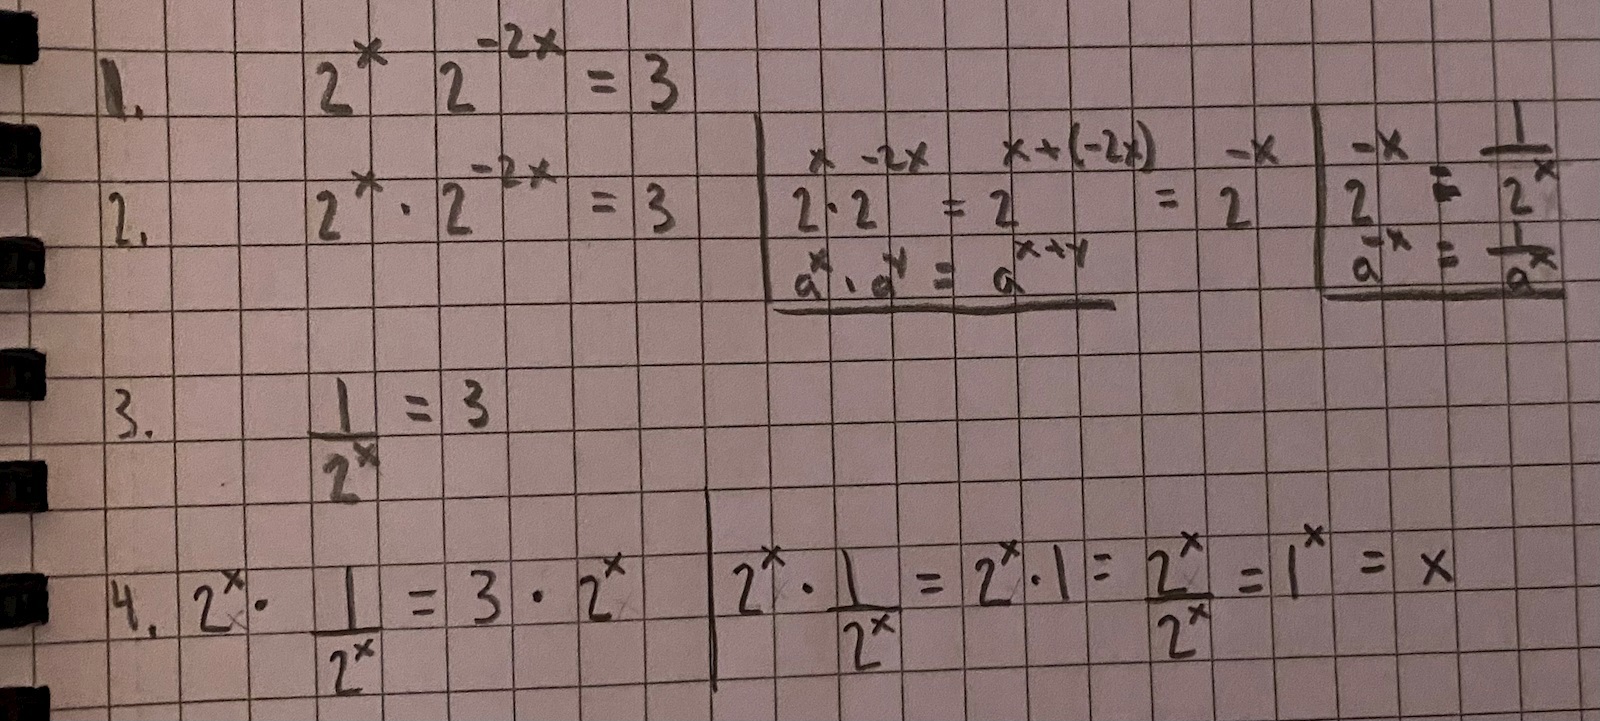 1. 2^x 2^-2x = 3
2. 2^x · 2^-2x = 3 | 2^x · 2^-2x = 2^x+(-2x) = 2^-x | 2^-x = 1/2^x
a^x · a^y = a^x+y | a^-x = 1/a^x
3. 1/2^x = 3
4. 2^x · 1/2^x = 3 · 2^x | 2^x · 1/2^x = 2^x · 1 = 2^x/2^x = 1^x = x